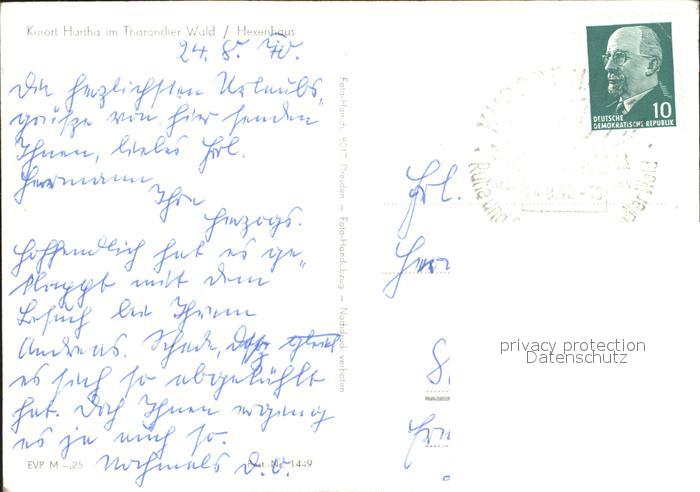 Kurort Hartha im Tharandter Wald / Hexenhaus
24. 8. 70.
Die herzlichsten Urlaubs-
grüße von hier senden
Ihnen, liebes Frl.
Herrmann
Ihre
Herzogs.
Hoffentlich hat es ge-
klappt mit dem
Besuch bei Ihrem
Andreas. Schade, daß
es sich so abgekühlt
hat. Doch Ihnen erging
es ja auch so.
Nochmals d. O.
EVP M -,25 Best.-Nr. 1449
Foto-Handk, 8017 Dresden — Foto-Handabzug — Nachdruck verboten
10
DEUTSCHE
DEMOKRATISCHE REPUBLIK
KURORT
Ruhe und
Frl.
Herr
privacy protection
Datenschutz